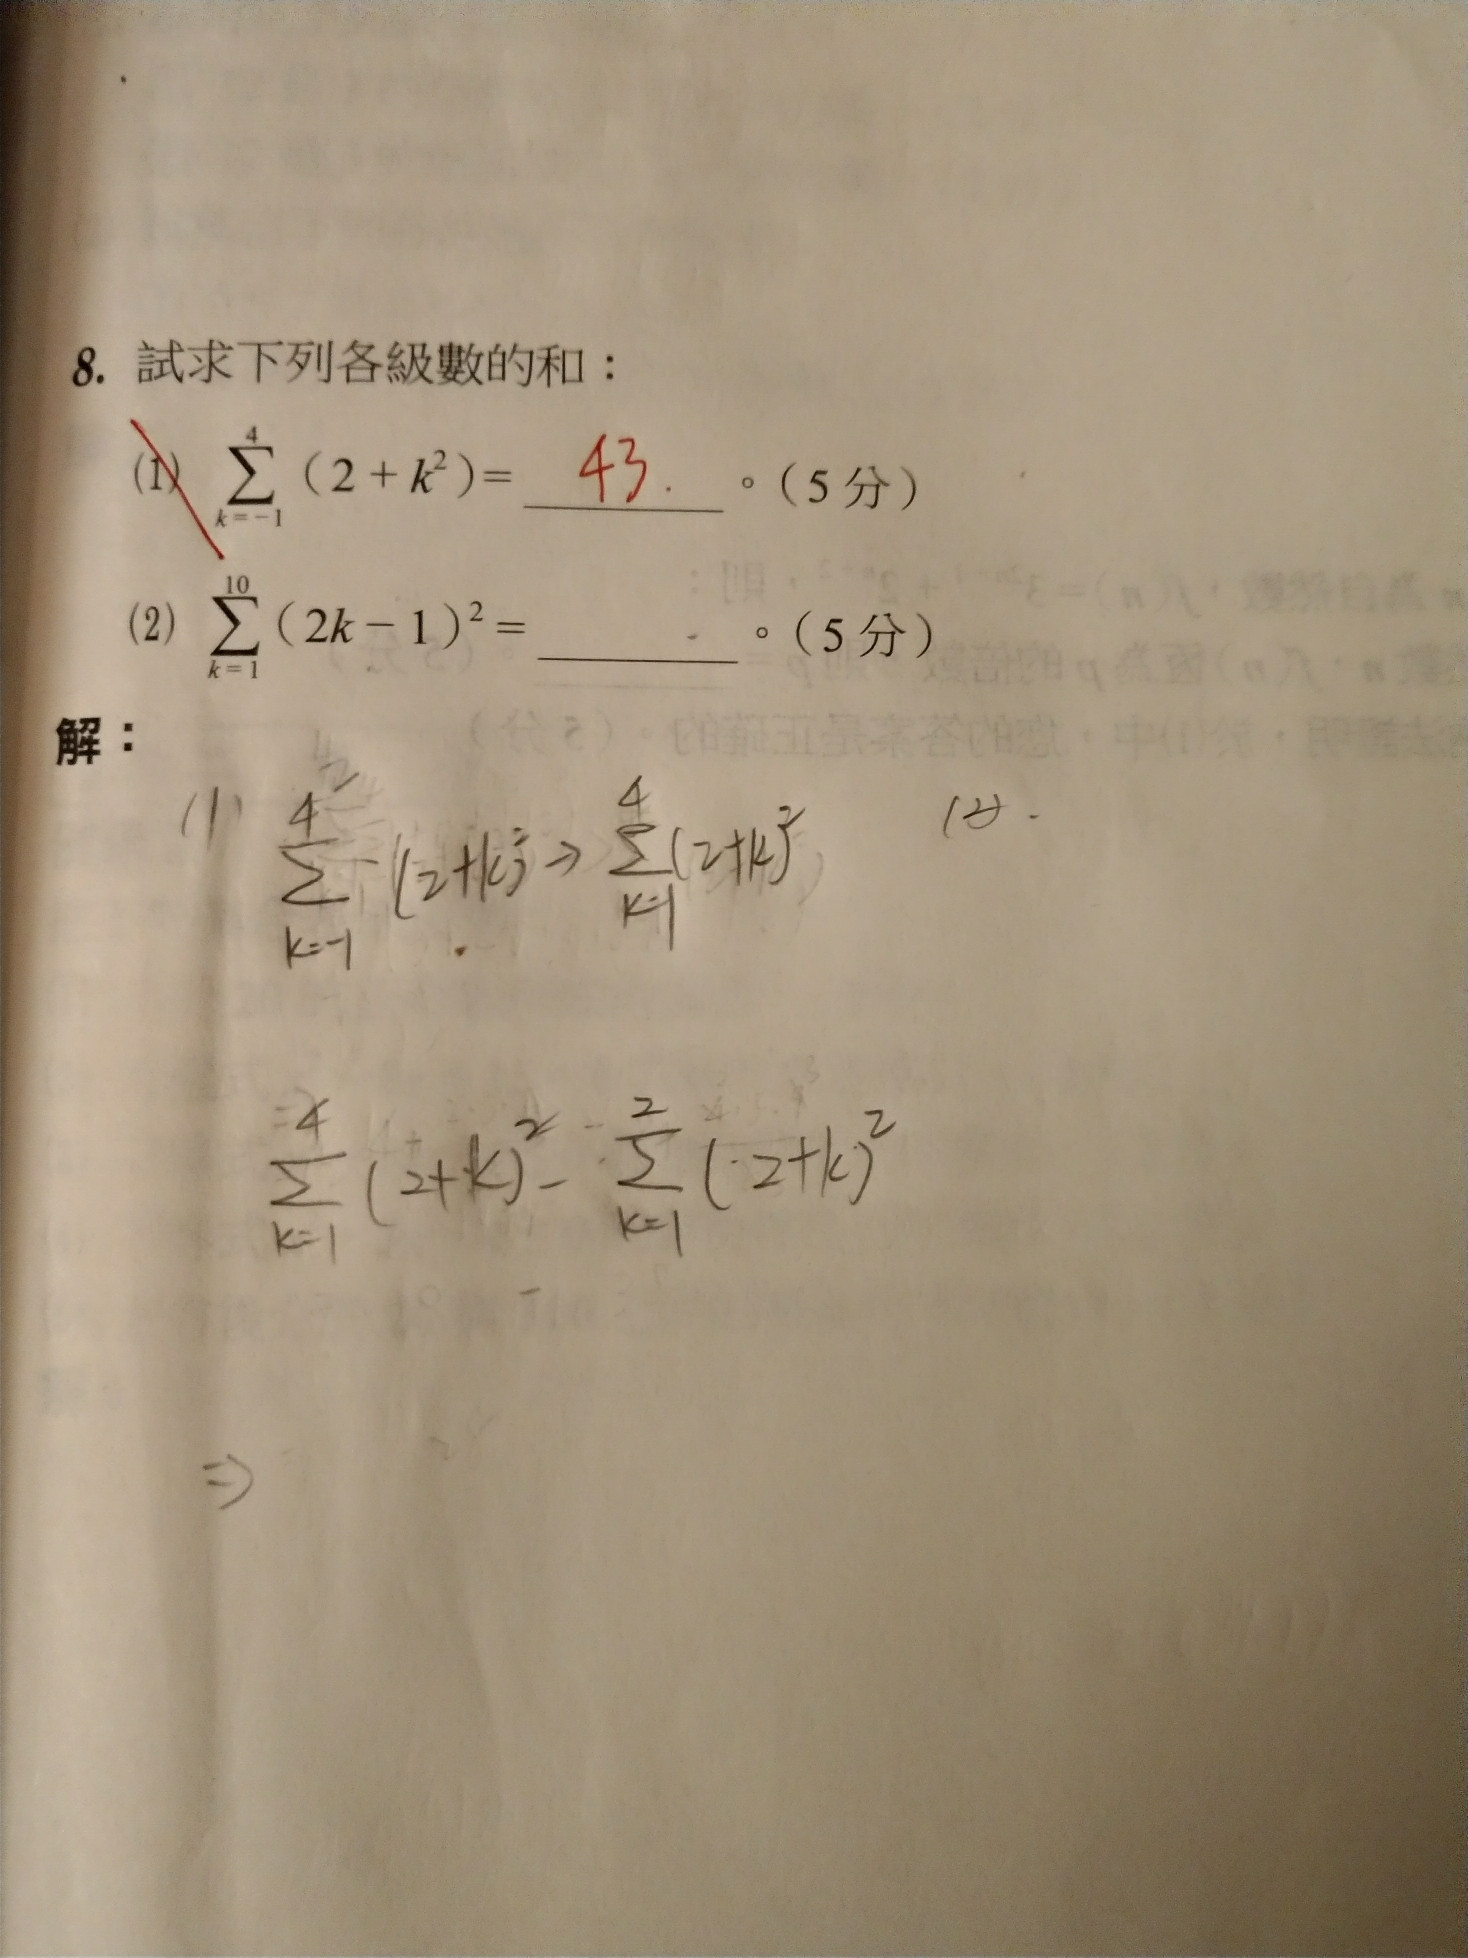 8. 試求下列各級數的和：
(1) \sum_{k=-1}^{4} (2+k²)= 43. 。(5分)
(2) \sum_{k=1}^{10} (2k-1)²= ______ 。(5分)
解：
(1) \sum_{k=-1}^{4} (2+k)² → \sum_{k=1}^{4} (2+k)² (2).
\sum_{k=1}^{4} (2+k)² - \sum_{k=1}^{2} (2+k)²
⇒